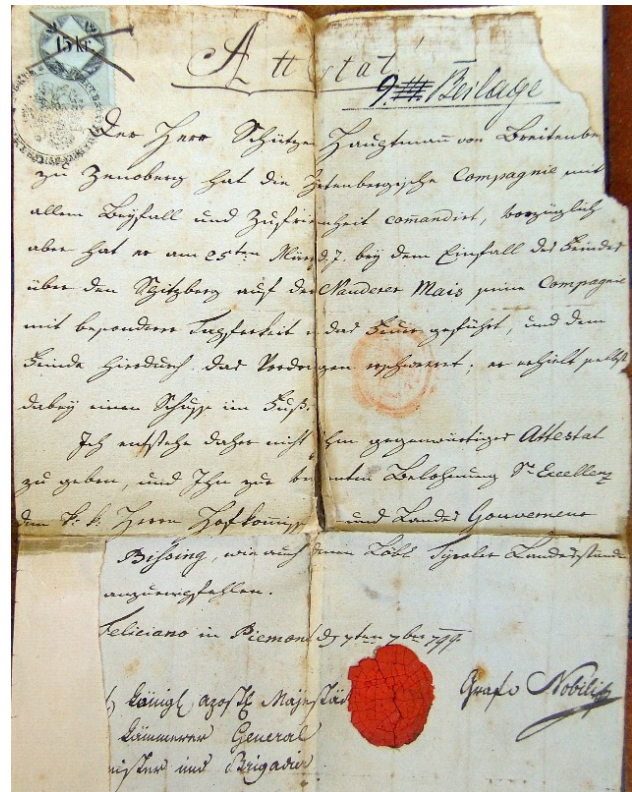 15 kr.
Attestat
9. Beilage
Der Herr Schützen Hauptmann von Breitenbe
zu Zenoberg hat die Compagnie mit
allem Beyfall und Zufriedenheit comandirt, vorzüglich
aber hat er am 25ten März d. J. bey dem Einfall des Feindes
über den Spitzberg auf der Nauderer Mais seine Compagnie
mit besonderer Tapferkeit in das Feuer geführt, und dem
Feinde hierdurch das Vordringen erschweret; er erhielt selbst
dabey einen Schuss im Fuß.
Ich entstehe daher nicht Ihm gegenwärtiges Attestat
zu geben, und Ihn zur Belohnung Sr Excellenz
dem k. k. Herrn Hofkommiss und Landes Gouverneur
Bissing, wie auch denen Löbl Tyroler Landesstände
anzuempfehlen.
Feliciano in Piemont d 7ten 7ber 799.
königl apostl Majestät
Kämmerer General
und Brigadier
Graf v Nobili